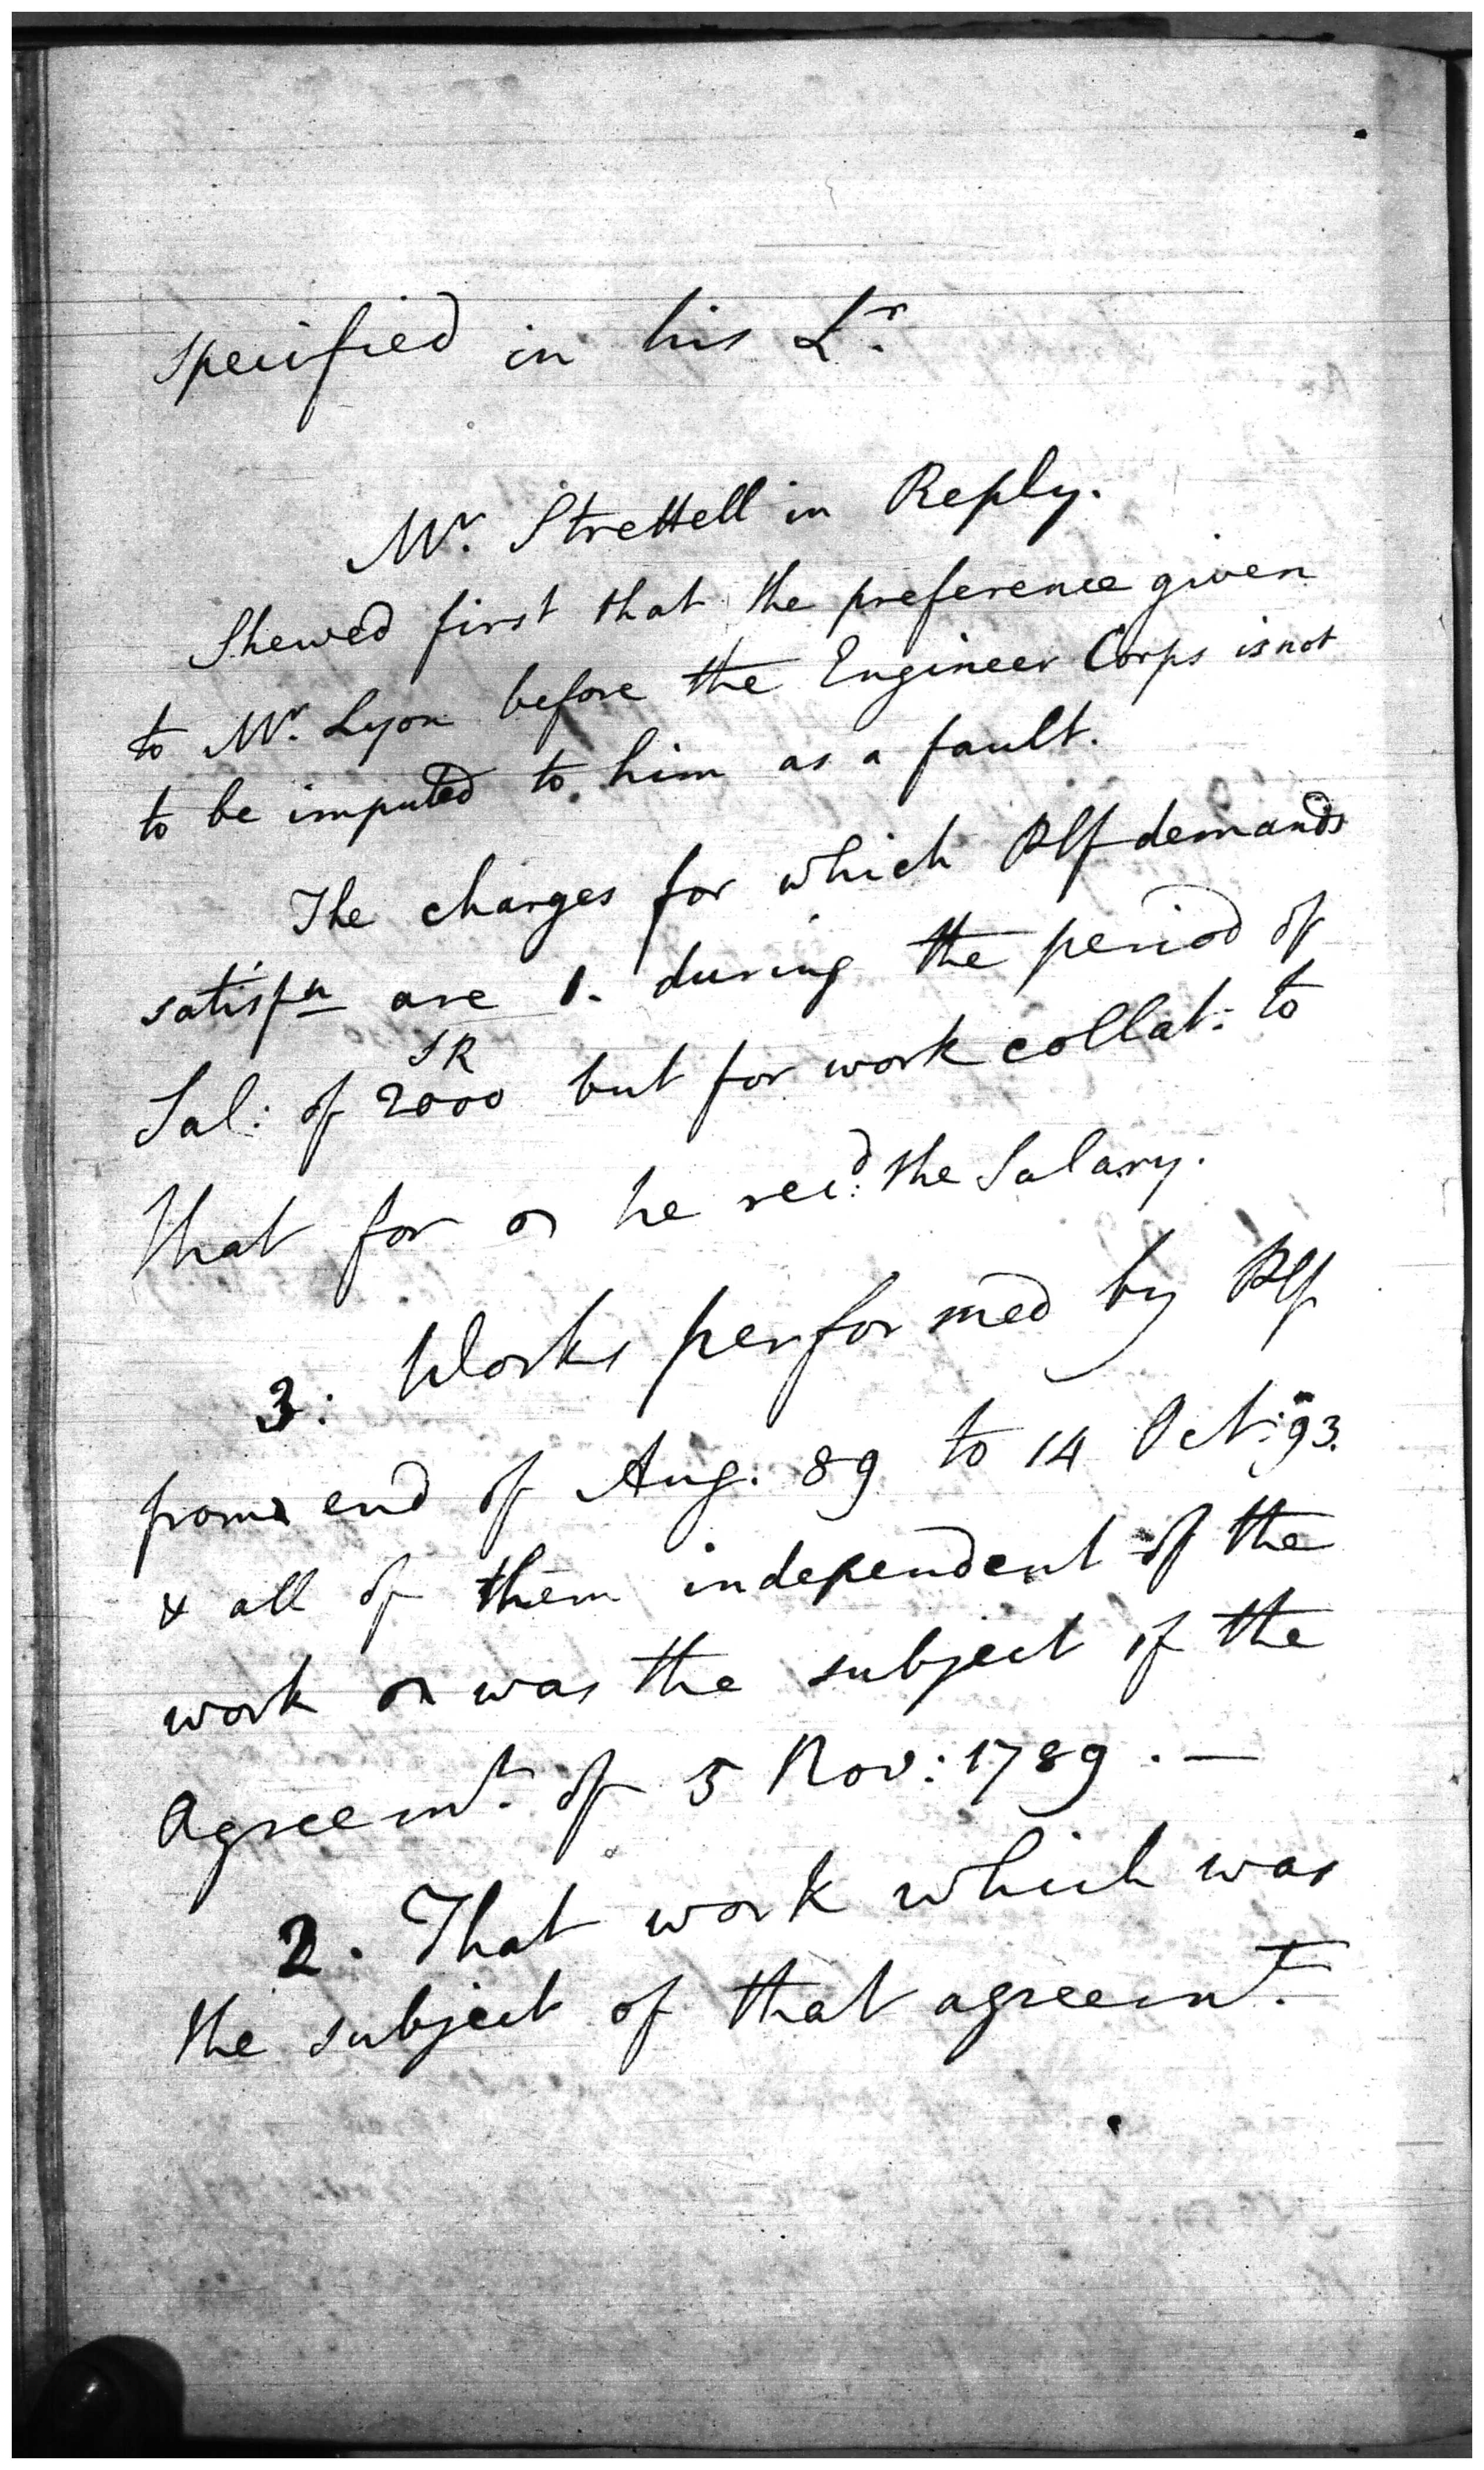 specified in his Lr.
Mr. Strettell in Reply.
Shewed first that the preference given
to Mr. Lyon before the Engineer Corps is not
to be imputed to him as a fault.
The charges for which Plf demands
satisfn are 1. during the period of
Sal: of 2000 SR but for work collat: to
that for he recd: the Salary.
3: Works performed by Plf
from end of Aug: 89 to 14 Oct: 93.
& all of them independent of the
work was the subject of the
Agreemt. of 5 Nov: 1789. —
2. That work which was
the subject of that agreemt.